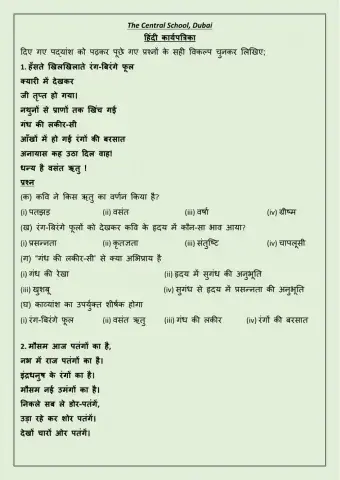 The Central School, Dubai
हिंदी कार्यपत्रिका
दिए गए पद्यांश को पढ़कर पूछे गए प्रश्नों के सही विकल्प चुनकर लिखिए;
1. हँसते खिलखिलाते रंग-बिरंगे फूल
क्यारी में देखकर
जी तृप्त हो गया।
नथुनों से प्राणों तक खिंच गई
गंध की लकीर-सी
आँखों में हो गई रंगों की बरसात
अनायास कह उठा दिल वाह!
धन्य है वसंत ऋतु !
प्रश्न
(क) कवि ने किस ऋतु का वर्णन किया है?
(i) पतझड़ (ii) वसंत (iii) वर्षा (iv) ग्रीष्म
(ख) रंग-बिरंगे फूलों को देखकर कवि के हृदय में कौन-सा भाव आया?
(i) प्रसन्नता (ii) कृतज्ञता (iii) संतुष्टि (iv) चापलूसी
(ग) "गंध की लकीर-सी' से क्या अभिप्राय है
(i) गंध की रेखा (ii) हृदय में सुगंध की अनुभूति
(iii) खुशबू (iv) सुगंध से हृदय में प्रसन्नता की अनुभूति
(घ) काव्यांश का उपर्युक्त शीर्षक होगा
(i) रंग-बिरंगे फूल (ii) वसंत ऋतु (iii) गंध की लकीर (iv) रंगों की बरसात
2. मौसम आज पतंगों का है,
नभ में राज पतंगों का है।
इंद्रधनुष के रंगों का है।
मौसम नई उमंगों का है।
निकले सब ले डोर-पतंगें,
उड़ा रहे कर शोर पतंगें।
देखो चारों ओर पतंगें।